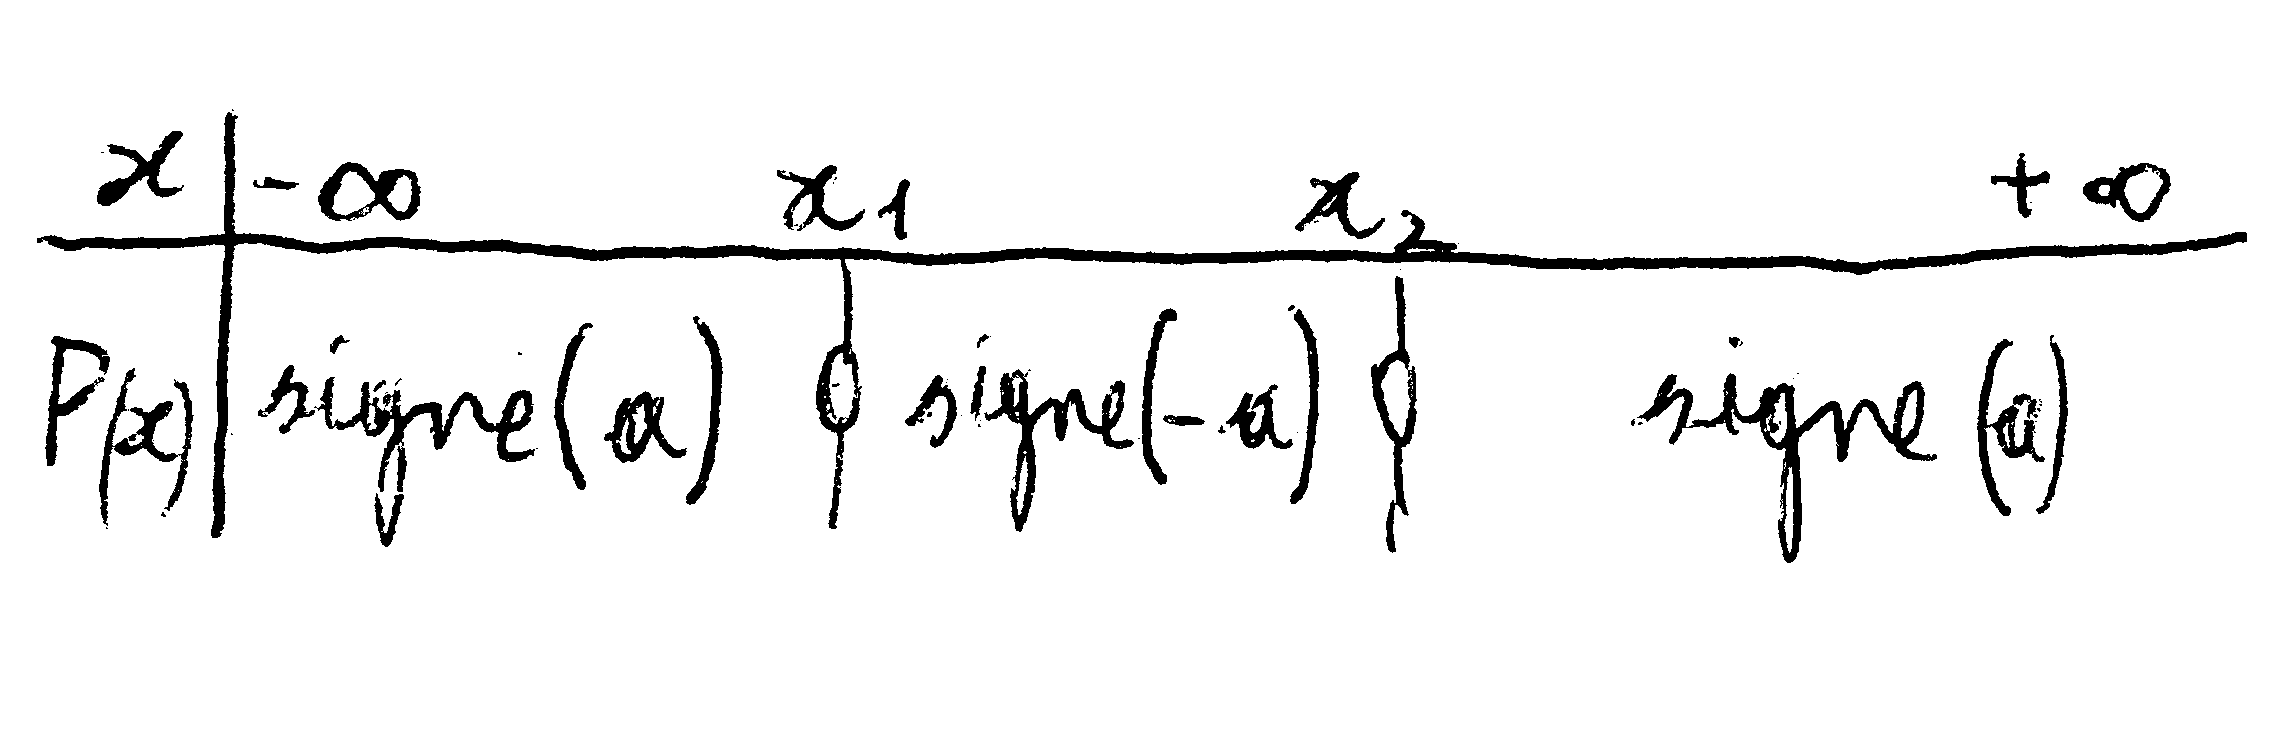 x -∞ x1 x2 +∞
P(x) signe(a) 0 signe(-a) 0 signe(a)